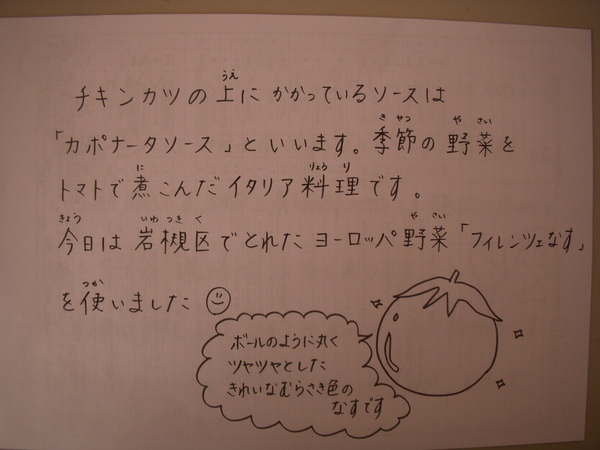 チキンカツの上にかかっているソースは
うえ
「カポナータソース」といいます。季節の野菜を
きせつ やさい
トマトで煮こんだイタリア料理です。
に りょうり
今日は岩槻区でとれたヨーロッパ野菜「フィレンツェなす」
きょう いわつきく やさい
を使いました
つか
ボールのように丸く
ツヤツヤとした
きれいなむらさき色の
なすです